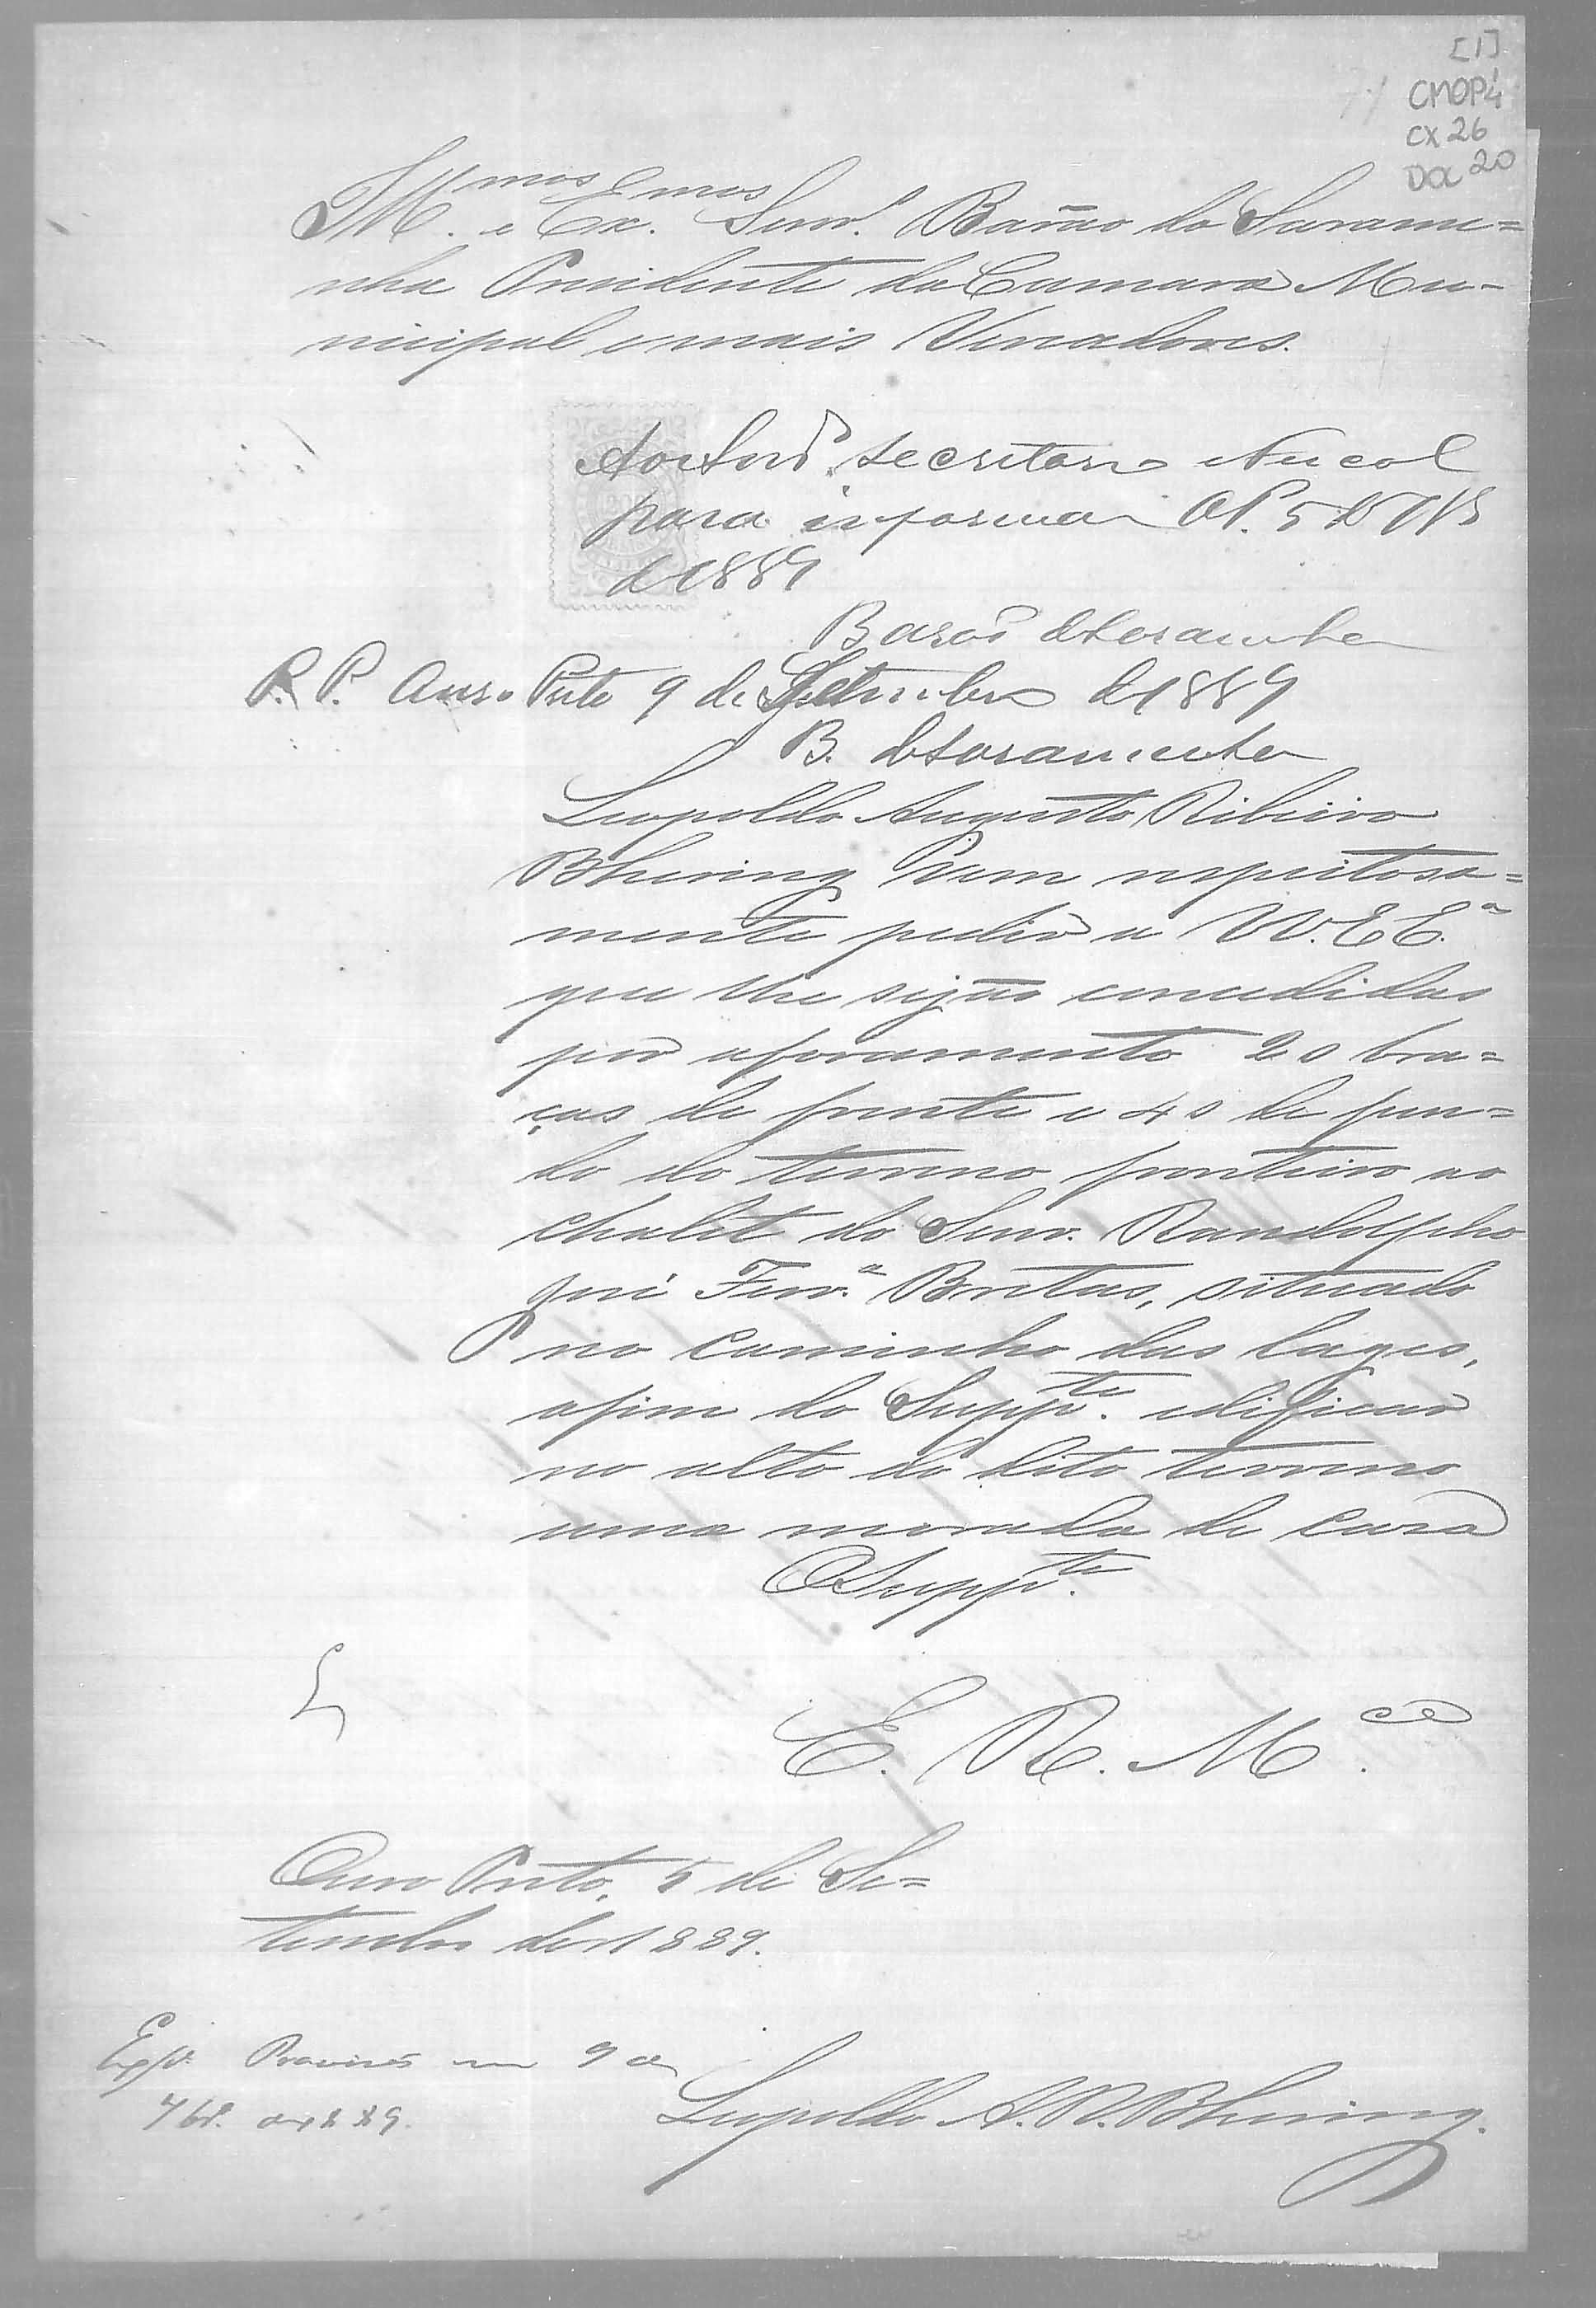 [1]
CMOP4
CX 26
DOC 20
Ill.mos e Ex.mos Senr. Barão do Sarame=
nha Presidente da Camara Mu-
nicipal e mais Vereadores.
Ao Snr. Secretario
para informar OP. 5 de 7bro
de 1889
Barão de Saramenha
P. P. Ouro Preto 9 de Setembro de 1889
B. de Saramenha
Leopoldo Augusto Ribeiro
Bhering vem respeitosa=
mente pedir a VV. EE.as
que lhe sejão concedidas
por aforamento 20 bra=
ças de frente e 40 de fun=
do do terreno fronteiro ao
chalet do Senr. Randolpho
José Ferr.a Bretas, situado
no caminho das Lages,
afim do Supp.te edificar
no alto do dito terreno
uma morada de casa
O Supp.te
E. R. M.ce
Ouro Preto, 5 de Se=
tembro de 1889.
Exp. Provisão em 9 de
7br. de 1889.
Leopoldo A. R. Bhering.